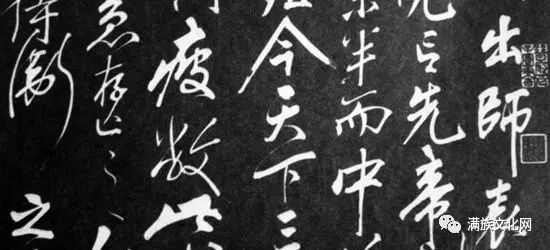 出師表
言先帝
半而中
今天下三
疲敝此
急存亡之
侍衛之
满族文化网